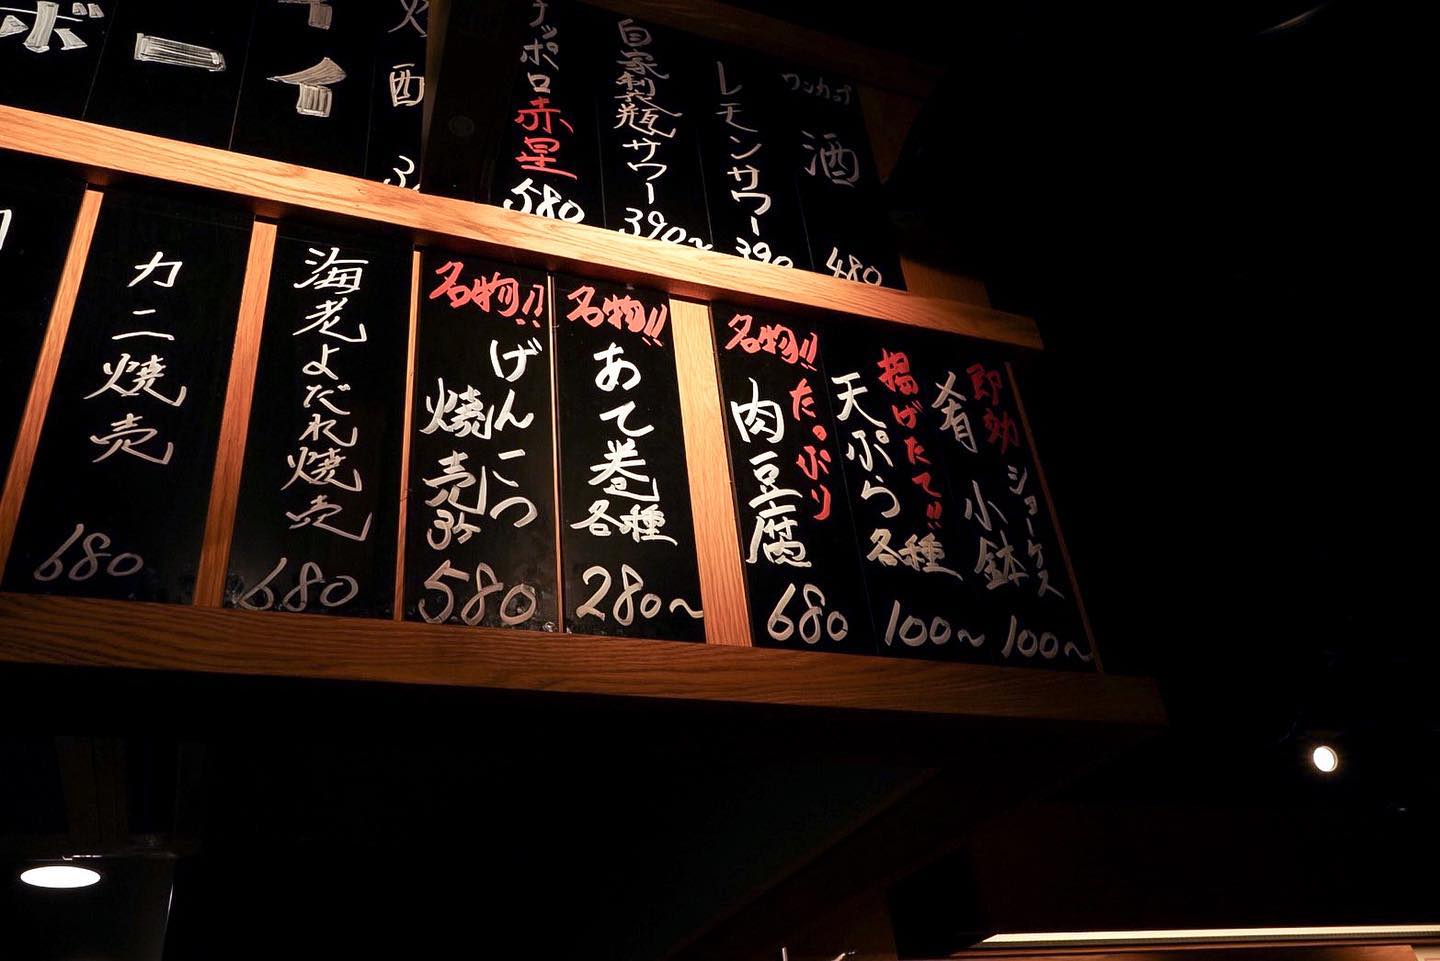 ボ
ー
イ
酎
サッポロ赤星
580
自家製瓶サワー
390〜
レモンサワー
390
ワンカップ
酒
480
即効
ショーケス
肴
小鉢
100〜
揚げたて!!
天ぷら
各種
100〜
名物!!
たっぷり
肉豆腐
680
名物!!
あて巻
各種
280〜
名物!!
げんこつ
焼売3ケ
580
海老よだれ焼売
680
カニ焼売
680